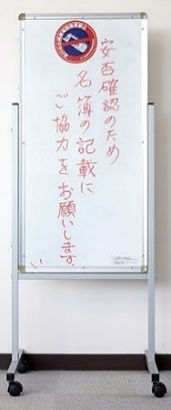 安否確認のため
名簿の記載に
ご協力をお願いします。